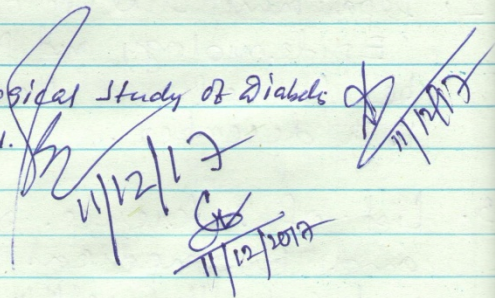 gical Study of Diabets
11/12/17
11/12/17
11/12/2017